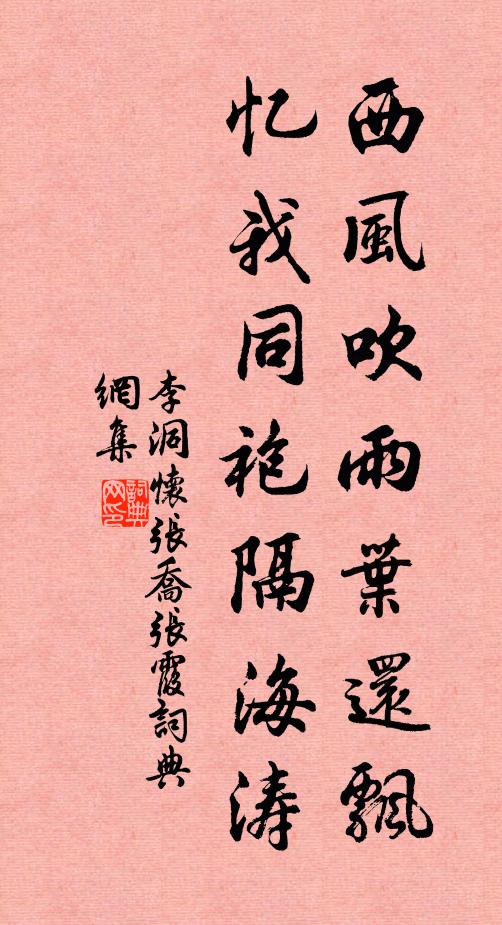 西風吹雨葉還飄
忆我同袍隔海涛
李洞懷張喬張霞詞典
網集
詞典
网印